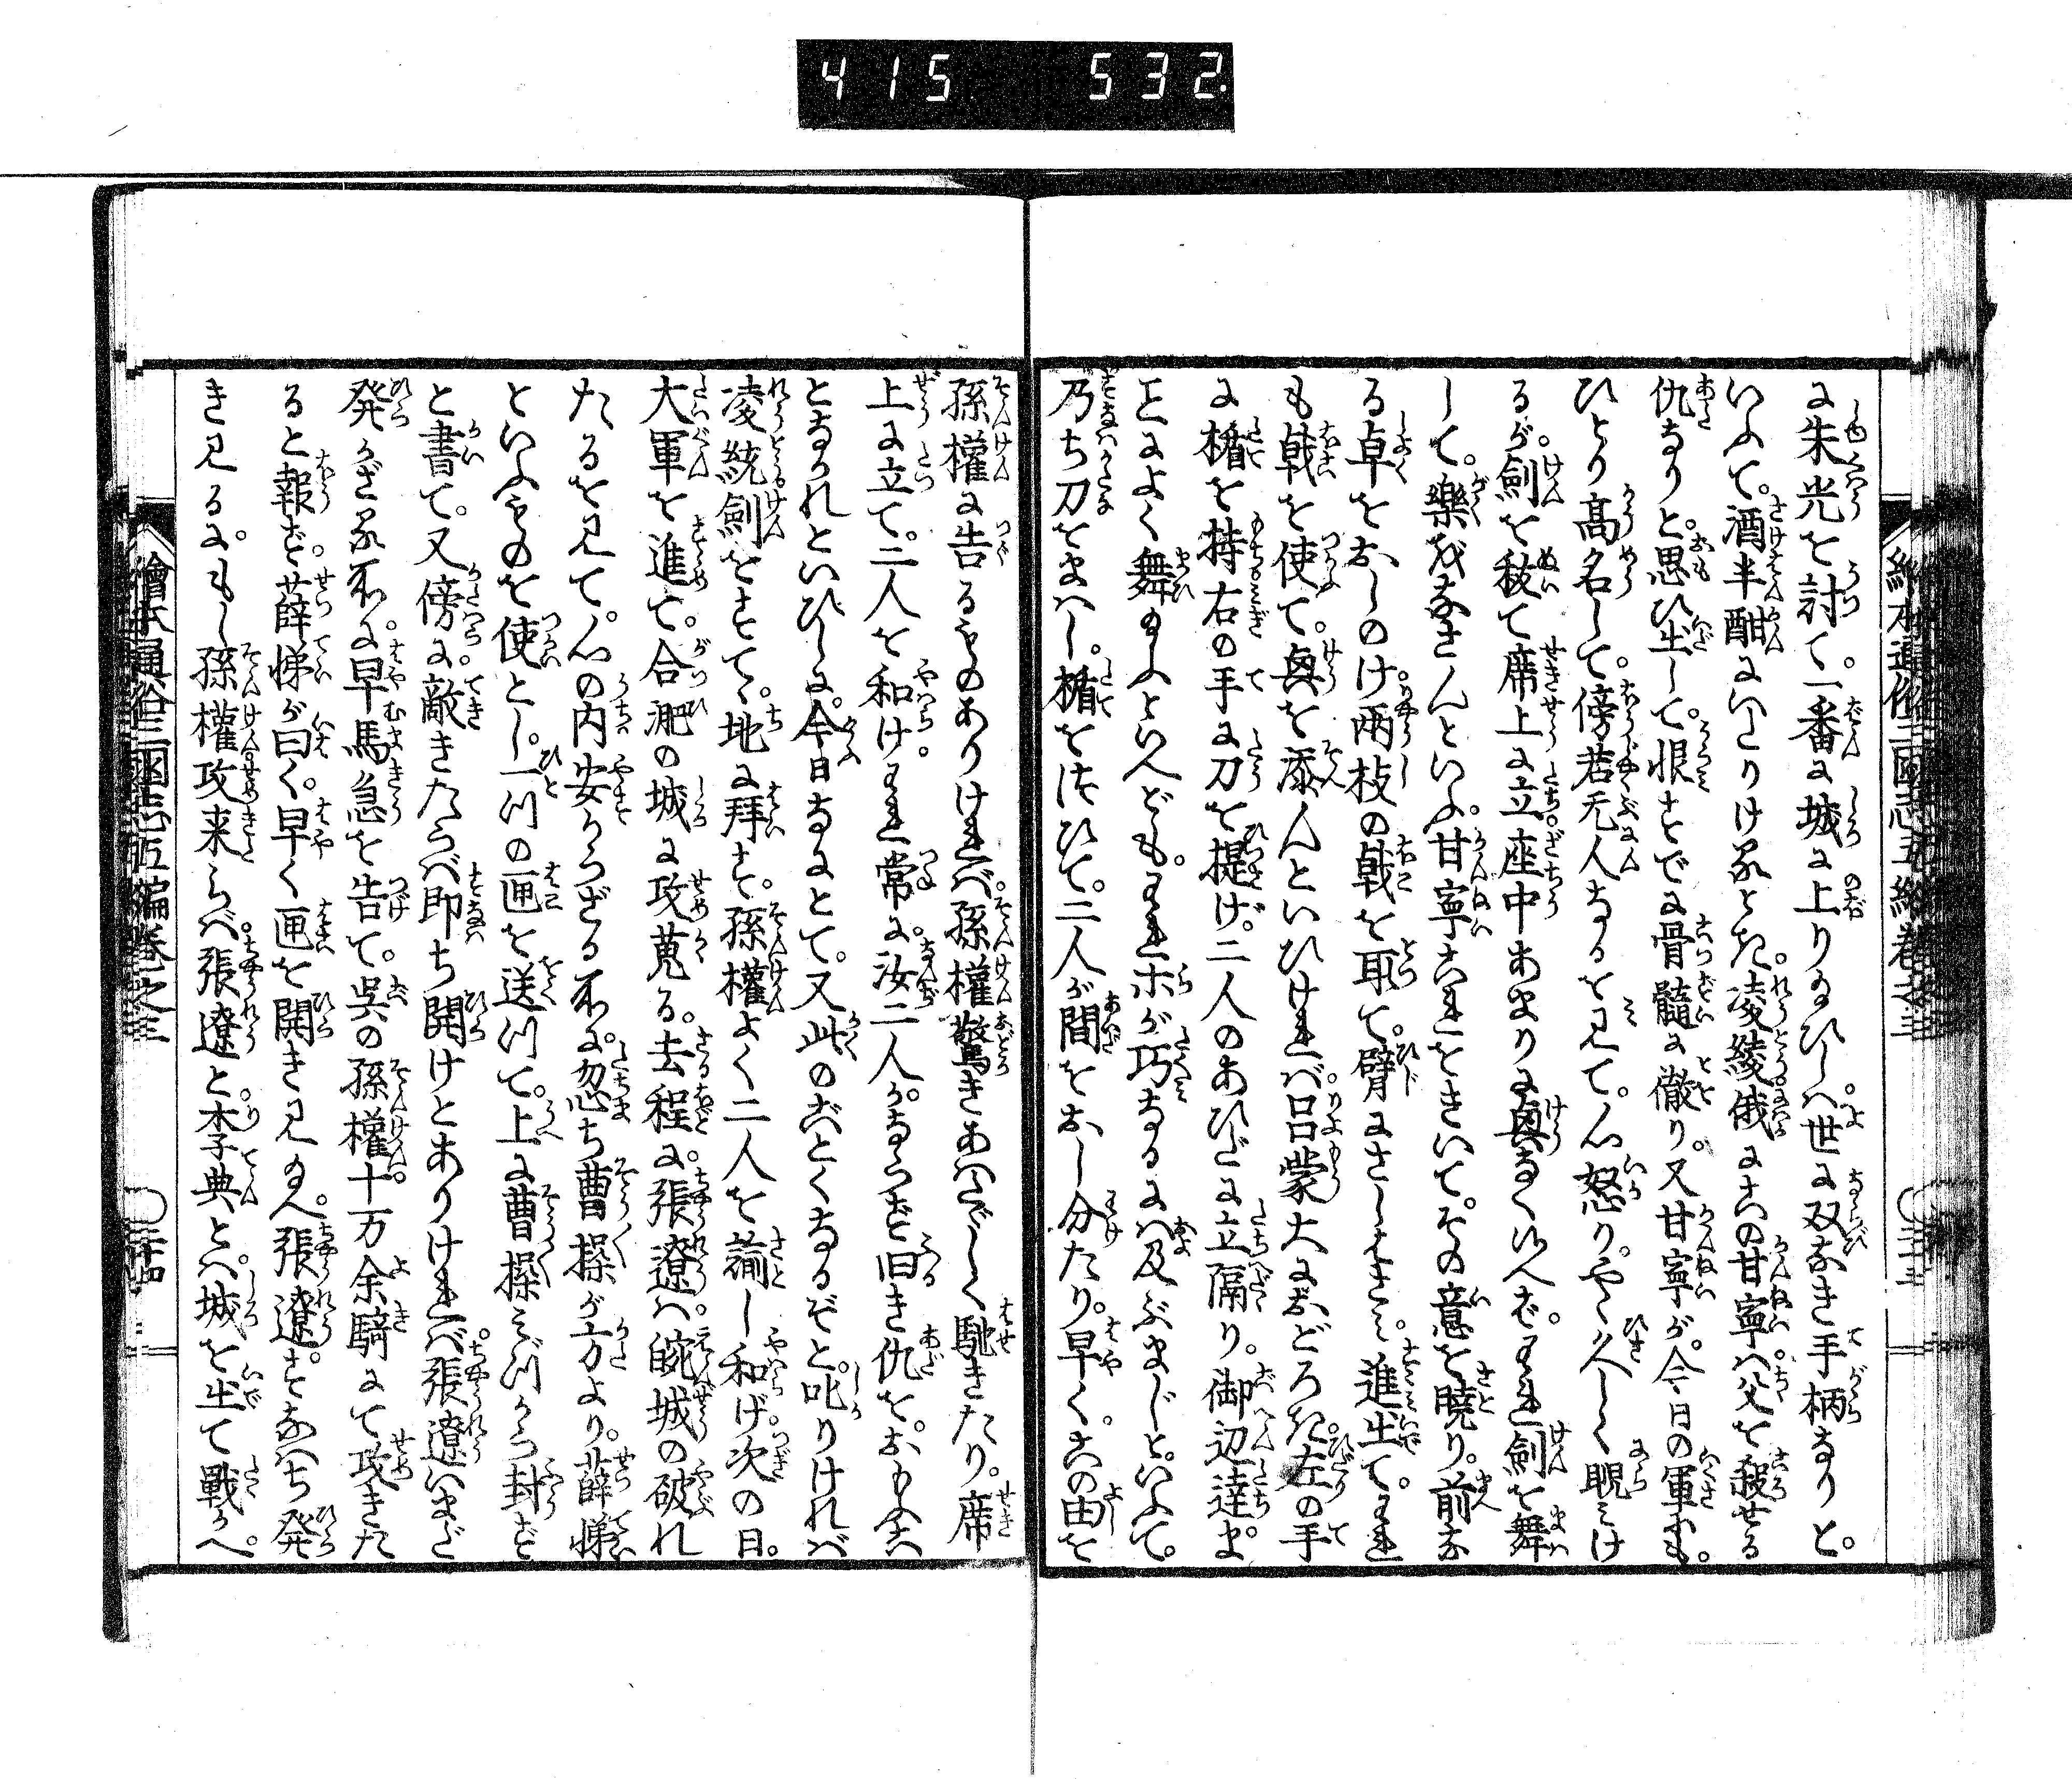 415 532
に朱光を討て。一番に城に上り給ひしハ世に双なき手柄なりと。
いふて。酒半酣にいたりける時。凌統俄にこの甘寧ハ父を殺せる
仇なりと。思ひ出して。恨すでに骨髄に徹り。又甘寧が。今日の軍も。
ひとり高名して。傍若无人なるを見て。心怒り。やゝ久しく睨ミけ
るが。劍を抜て席上に立座中あまりに興なく候へば。それ劍を舞
して。樂をなさんといふ。甘寧これをきいて。その意を曉り。前な
る卓をおしのけ。両枝の戟を取て。臂にさしはさミ。進出て。われ
も戟を使て。興を添んといひけれバ。呂蒙大におどろき。左の手
に楯を持。右の手に刀を提げ。二人のあひだに立隔り。御辺達。ま
ことによく舞給ふといへども。われホが巧なるにハ及ぶまじと。いふて。
乃ち刀をまハし。楯をつかひて。二人が間をおし分たり。早く。この由を
孫權に告るものありけれバ。孫權驚きあハてゞしく馳きたり。席
上に立て。二人を和け。われ常に。汝二人が。ならず旧き仇を。おもふこ
となかれといひしに。今日なにとて。又此のごとくなるぞと。叱りけれバ
凌統劍をすてゝ。地に拜す。孫權よく二人を諭し和げ。次の日。
大軍を進て。合淝の城に攻蒐る。去程に。張遼ハ。皖城の破れ
たるを見て。心の内安からざる所に。忽ち曹操が方より。薛悌
といふものを使とし。一ツの匣を送ツて。上に曹操ミづから封ず
と書て。又傍に。敵きたらバ即ち開けとありけれバ。張遼いまだ
発かざる所に。早馬急を告て。呉の孫權。十万余騎にて攻きた
ると報ず。薛悌が曰く。早く匣を開き見給へ。張遼。すなハち発
き見るに。もし孫權攻来らバ。張遼と。李典とハ。城を出て戰かへ。
繪本通俗三國志五編巻之三